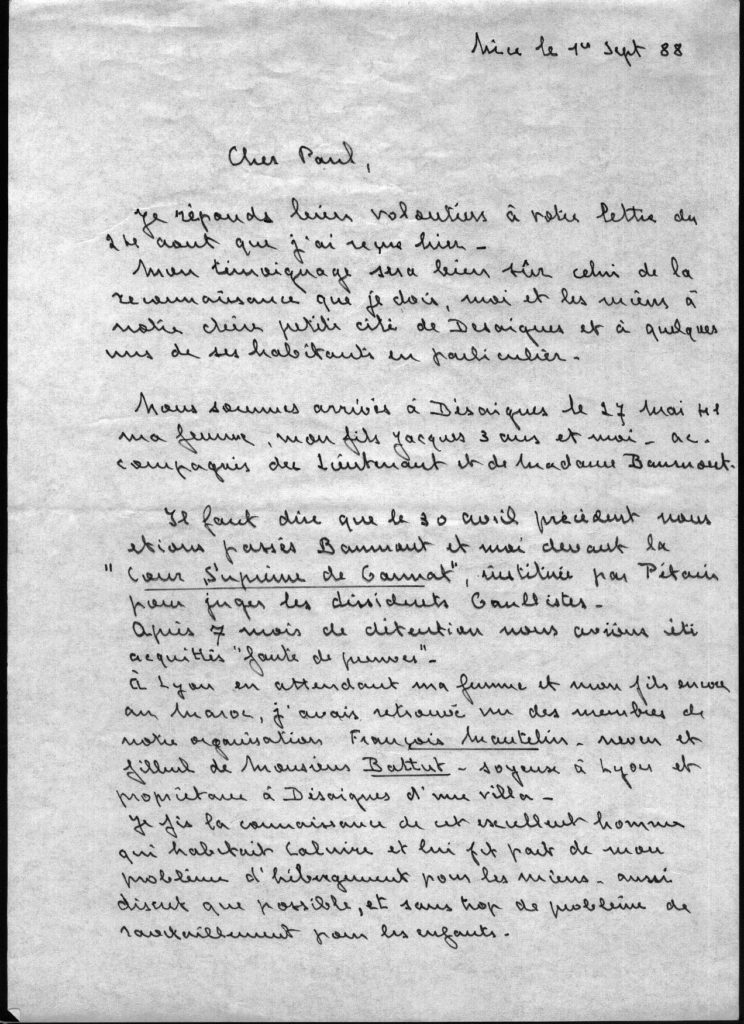 Nice le 1er Sept 88
Cher Paul,
Je réponds bien volontiers à votre lettre du
24 aout que j'ai reçue hier -
Mon témoignage sera bien sûr celui de la
reconnaissance que je dois, moi et les miens à
notre chère petite cité de Desaignes et à quelques
uns de ses habitants en particulier -
Nous sommes arrivés à Désaignes le 27 Mai 41
ma femme, mon fils Jacques 3 ans et moi - ac-
compagnés du Lieutenant et de Madame Baumont.
Il faut dire que le 30 avril précédent nous
etions passés Baumont et moi devant la
"Cour Suprème de Gannat", instituée par Pétain
pour juger les dissidents Gaullistes -
Après 7 mois de détention nous avions été
acquittés "faute de preuves" -
à Lyon en attendant ma femme et mon fils encore
au Maroc, j'avais retrouvé un des membres de
notre organisation François Mautelin - neveu et
filleul de Monsieur Battut - soyeux à Lyon et
propriétaire à Désaignes d'une villa -
Je fis la connaissance de cet excellent homme
qui habitait Caluire et lui fit part de mon
problème d'hébergement pour les miens - aussi
discret que possible, et sans trop de problème de
ravitaillement pour les enfants -